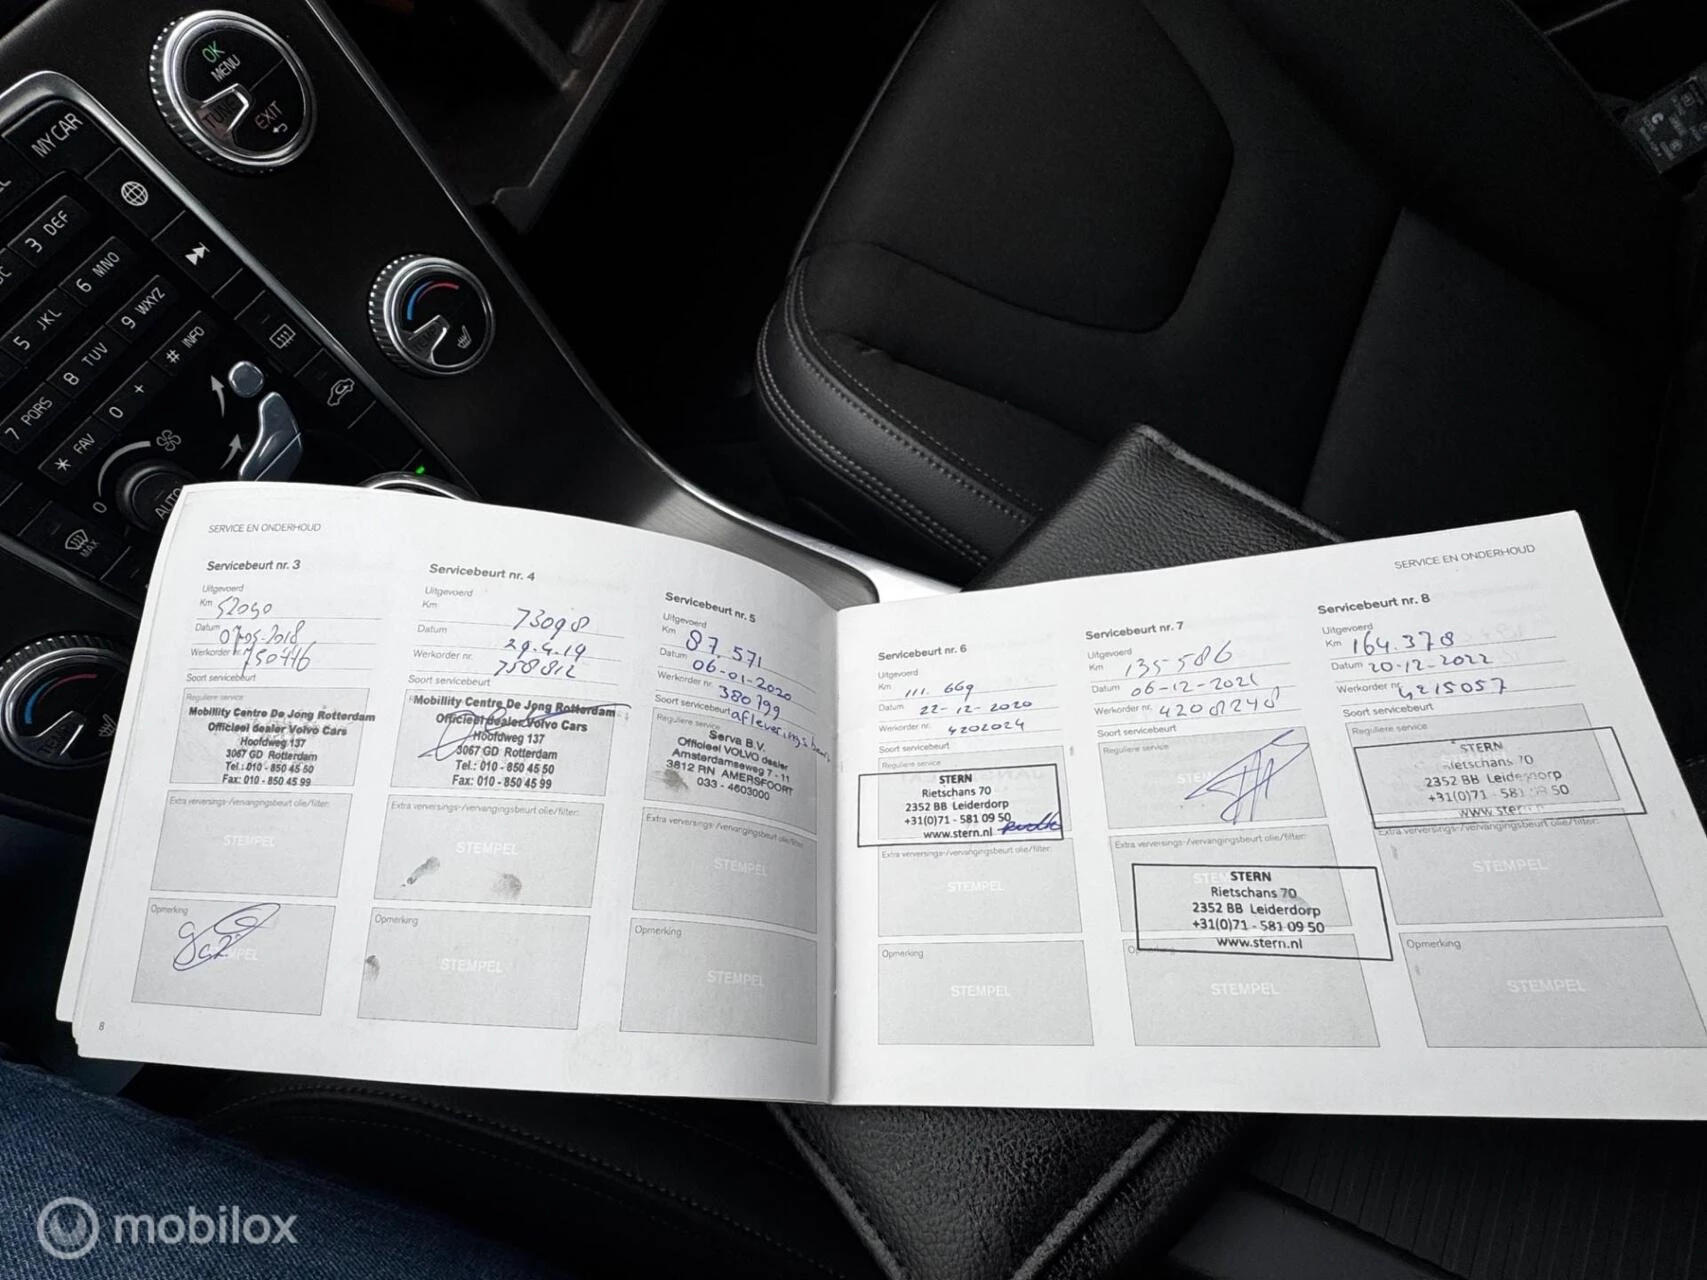 OK
MENU
TUNE
EXIT
MY CAR
3 DEF
6 MNO
5 JKL
9 WXYZ
8 TUV
# INFO
7 PQRS
0 +
* FAV
0
AUTO
MAX
SERVICE EN ONDERHOUD
Servicebeurt nr. 3
Uitgevoerd
Km 52090
Datum 07-05-2018
Werkorder nr. 750446
Soort servicebeurt
Reguliere service
Mobility Centre De Jong Rotterdam
Officieel dealer Volvo Cars
Hoofdweg 137
3067 GD Rotterdam
Tel.: 010 - 850 45 50
Fax: 010 - 850 45 99
Extra verversings-/vervangingsbeurt olie/filter:
STEMPEL
Opmerking
STEMPEL
8
Servicebeurt nr. 4
Uitgevoerd
Km 73098
Datum 29.4.19
Werkorder nr. 758812
Soort servicebeurt
Mobility Centre De Jong Rotterdam
Officieel dealer Volvo Cars
Hoofdweg 137
3067 GD Rotterdam
Tel.: 010 - 850 45 50
Fax: 010 - 850 45 99
Extra verversings-/vervangingsbeurt olie/filter:
STEMPEL
Opmerking
STEMPEL
Servicebeurt nr. 5
Uitgevoerd
Km 87.571
Datum 06-01-2020
Werkorder nr. 380799
Soort servicebeurt afleveringsbeurt
Reguliere service
Serva B.V.
Officieel VOLVO dealer
Amsterdamseweg 7 - 11
3812 RN AMERSFOORT
033 - 4603000
Extra verversings-/vervangingsbeurt olie/filter:
STEMPEL
Opmerking
STEMPEL
SERVICE EN ONDERHOUD
Servicebeurt nr. 6
Uitgevoerd
Km 111.669
Datum 22-12-2020
Werkorder nr. 4202024
Soort servicebeurt
Reguliere service
STERN
Rietschans 70
2352 BB Leiderdorp
+31(0)71 - 581 09 50
www.stern.nl
Extra verversings-/vervangingsbeurt olie/filter:
STEMPEL
Opmerking
STEMPEL
Servicebeurt nr. 7
Uitgevoerd
Km 135586
Datum 06-12-2021
Werkorder nr. 4208240
Soort servicebeurt
Reguliere service
Extra verversings-/vervangingsbeurt olie/filter:
STERN
Rietschans 70
2352 BB Leiderdorp
+31(0)71 - 581 09 50
www.stern.nl
STEMPEL
Servicebeurt nr. 8
Uitgevoerd
Km 164.378
Datum 20-12-2022
Werkorder nr. 4215057
Soort servicebeurt
Reguliere service
STERN
Rietschans 70
2352 BB Leiderdorp
+31(0)71 - 581 09 50
www.stern.nl
Extra verversings-/vervangingsbeurt olie/filter:
STEMPEL
Opmerking
STEMPEL
mobilox